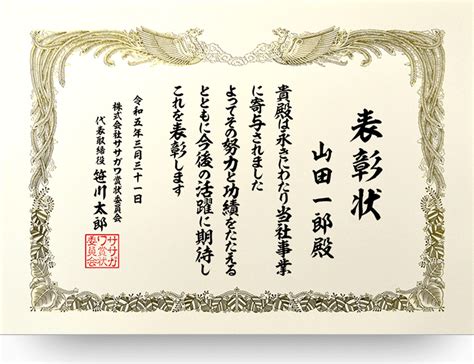 表彰状
山田一郎殿
貴殿は永きにわたり当社事業
に寄与されました
よってその努力と功績をたたえる
とともに今後の活躍に期待し
これを表彰します
令和五年三月三十一日
株式会社ササガワ賞状委員会
代表取締役 笹川太郎
ササガ
ワ賞状
委員会